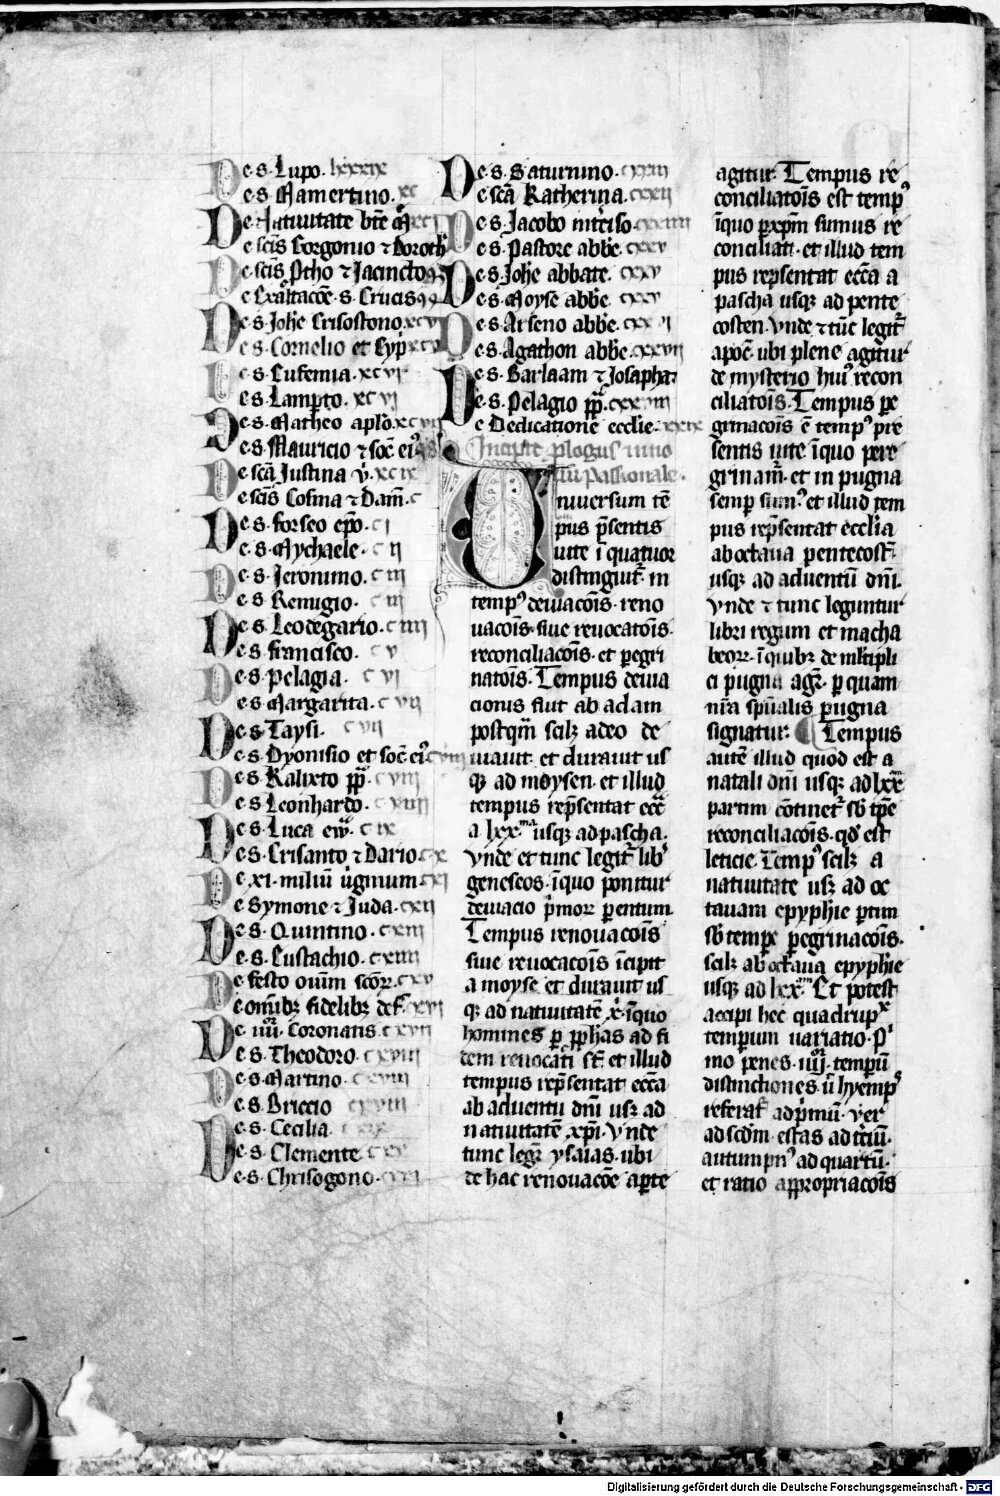 De·s· Lupo· lxxxix
De·s· Mamertino· xc
De Natiuitate bt̄e M̄ xci
De sc̄is Gorgonio ⁊ Doroth
De sc̄is Ptho ⁊ Jacincto
De Exaltac̄oe· s· Crucis
De·s· Joh̄e Crisostono· xcv
De·s· Cornelio et Cyp̄ xcv
De·s· Eufemia· xcvi
De·s· Lamp̄to· xcvi
De·s· Matheo apl̄o· xcvii
De·s· Mauricio ⁊ soc̄ ei⁹
De sc̄a Justina v̄· xcix
De sc̄is Cosma ⁊ Dam̄· c
De·s· forseo ep̄o· ci
De·s· Mychaele· cii
De·s· Jeronimo· ciii
De·s Remigio· ciii
De·s· Leodegario· ciiii
De·s· francisco· cv
De·s· Pelagia· cvi
De·s Margarita· cvii
De·s· Taysi· cvii
De·s· Dyonisio et soc̄ ei⁹ cviii
De·s· Kalixto pp̄· cviii
De·s· Leonhardo· cviii
De·s· Luca ew̄· cix
De·s· Crisanto ⁊ Dario· cx
De xi· miliū v̄ginum· cxi
De Symone ⁊ Juda· cxii
De·s· Quintino· cxiii
De·s· Eustachio· cxiiii
De festo om̄im sc̄oꝝ· cxv
De om̄ibꝫ fidelibꝫ def̄· cxvi
De iiiior· Coronatis· cxvii
De·s· Theodoro· cxviii
De·s· Martino· cxviii
De·s· Briccio cxviii
De·s· Cecilia· cxix
De·s· Clemente· cxx
De·s· Chrisogono· cxxi
De·s· Saturnino· cxxiii
De sc̄a Katherina· cxxii
De·s· Jacobo int̄ciso· cxxiiii
De·s· Pastore abb̄e· cxxv
De·s· Joh̄e abbate· cxxv
De·s· Moyse abb̄e· cxxv
De·s· Arseno abb̄e· cxxvi
De·s· Agathon abb̄e· cxxvii
De·s· Barlaam ⁊ Josaphat
De·s· Pelagio pp̄· cxxviii
De Dedicatione eccl̄ie· cxxix
Incipit plogus' in no
uū Passionale·
Uniuersum tē
pus p̄sentis
uite ī quatuor
distingiut̄ in
temp⁹ deuiac̄ois· reno
uac̄ois· siue reuocatōis·
reconciliac̄ois· et p̱egri
natōis· Tempus deuia
cionis fiut ab adam
postqm̄ scilꝫ adeo de
uiauit et durauit us
qꝫ ad moysen· et illud
tempus rep̄sentat ecc̄a
a lxx.ma usqꝫ ad pascha·
Vnde et tunc legit̄ lib̄
geneseos· īquo ponitur
deuiacio p̄moꝝ parentum
Tempus renouac̄ois
siue reuocac̄ois īcipit
a moyse et durauit us
qꝫ ad natiuitatē x̄· īquo
homines p̱ pp̄has ad fi
dem reuocati sūt et illud
tempus rep̄sentat ecc̄a
ab aduentu dn̄i usꝫ ad
natiuitatē xp̄i· Vnde
tunc legit̄ ysaias· ubi
de hac renouac̄oe ap̱te
agitur· Tempus re
conciliatōis est temp⁹
īquo p̱ xp̄m sumus re
conciliati· et illud tem
pus rep̄sentat ecc̄a a
pascha usqꝫ ad pente
costen· Vnde ⁊ tūc legit̄
apoc̄· ubi plene agitur
de mysterio hui⁹ recon
ciliatōis· Tempus pe
grinac̄ois ē temp⁹ pre
sentis uite īquo pere
grinam̄· et in pugna
semp̱ sum⁹· et illud tem
pus rep̄sentat eccl̄ia
ab octaua pentecost̄·
usqꝫ ad aduentū dn̄i·
Vnde ⁊ tunc leguntur
libri regum et macha
beoꝝ· ī quibꝫ de mltipli
ci pugna agit̄· p̱ quam
nr̄a sp̄ualis pugna
signatur· Tempus
autē illud quod est a
natali dn̄i usqꝫ ad lxx.m
partim cōtinet̄ sb̄ tp̄e
reconciliac̄ois· qd̄ est
leticie· Temp⁹ scilꝫ a
natiuitate usꝫ ad oc
tauam epyphīe p̱tim
sb̄ tempe pegrinac̄ois·
scilꝫ ab octaua epyphīe
usqꝫ ad lxx.m Et potest
accipi hec quadrup̱x
temporum uariatio· P⁹
mo penes· iiiior· temp̱ū
distinctiones· ū hyemp⁹
referat̄ ad p̄mū· ver
ad sc̄dm· estas ad t̄ciū·
autumpn⁹ ad quartū·
et ratio appropriac̄ois
Digitalisierung gefördert durch die Deutsche Forschungsgemeinschaft - DFG